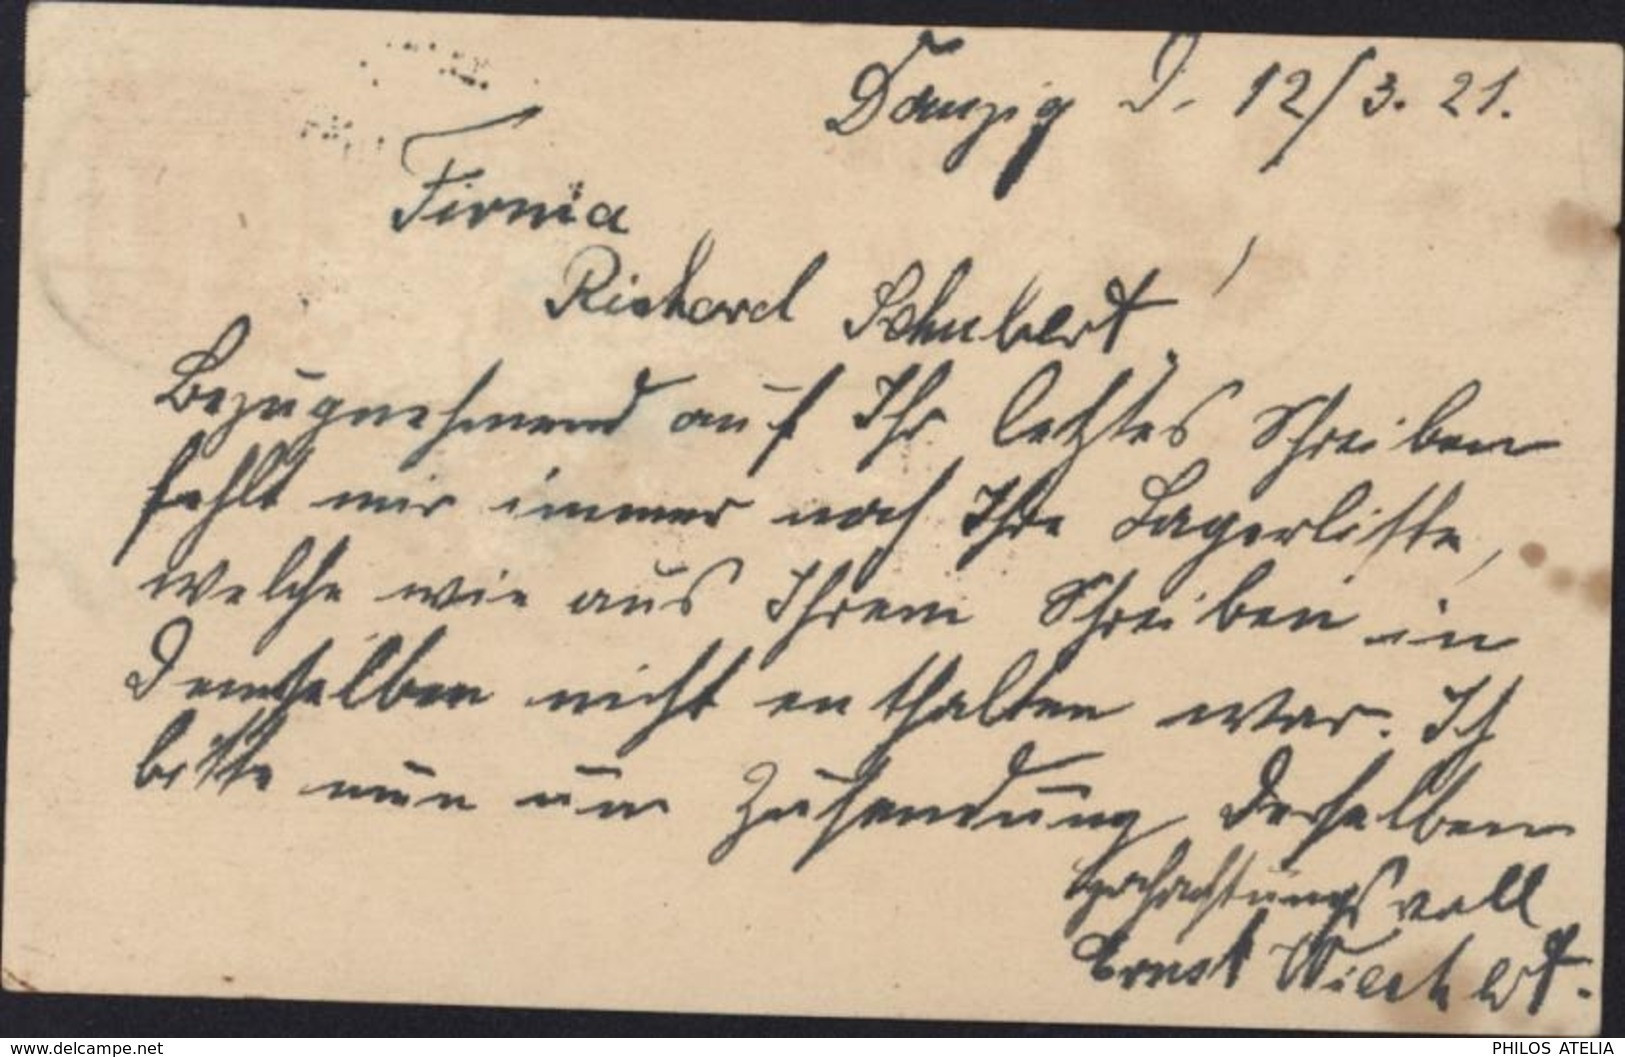 Danzig d. 12/3. 21.
Firma
Richard Schubert!
Bezugnehmend auf Ihr letztes Schreiben
fehlt mir immer noch Ihre Lagerliste,
welche wie aus Ihrem Schreiben in
demselben nicht enthalten war. Ich
bitte nun um Zusendung derselben
Hochachtungsvoll
Ernst
www.delcampe.net
PHILOS ATELIA